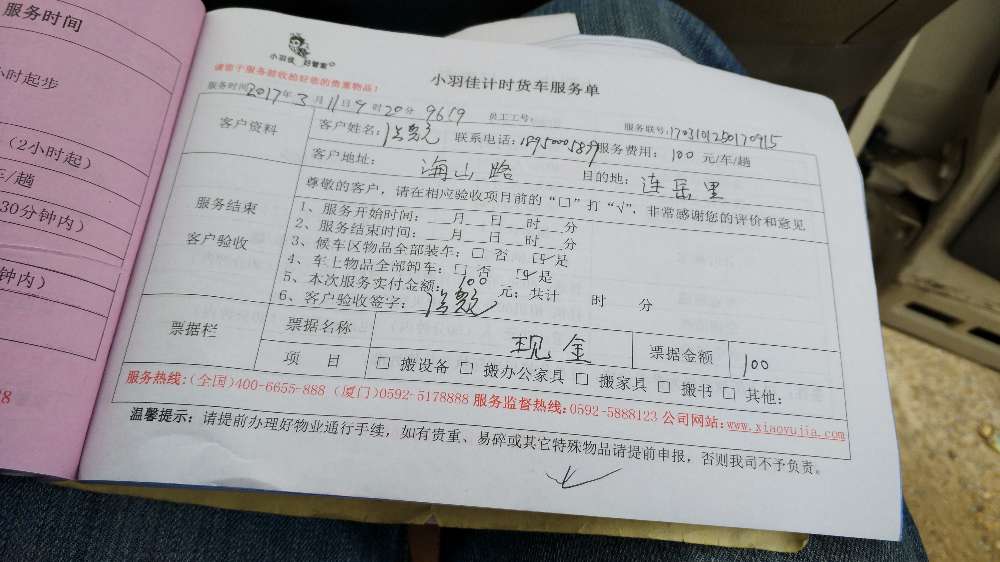 服务时间
小时起步
(2小时起)
/趟
30分钟内)
钟内)
小羽佳 好管家
请你于服务前收拾好您的贵重物品!
小羽佳计时货车服务单
服务时间2017年3月11日9时20分 9619 员工工号: 服务联号:170310125017
客户资料 客户姓名: 联系电话: 服务费用: 100 元/车/趟
客户地址: 海山路 目的地: 连岳里
尊敬的客户,请在相应验收项目前的“□”打“√”,非常感谢您的评价和意见
服务结束
客户验收
1、服务开始时间:___月__日__时__分
2、服务结束时间:___月__日__时__分
3、候车区物品全部装车:□ 否 □√是
4、车上物品全部卸车:□ 否 □√是
5、本次服务实付金额: 100 元;共计 时 分
6、客户验收签字:
票据栏 票据名称 现金 票据金额 100
项 目 □ 搬设备 □ 搬办公家具 □ 搬家具 □ 搬书 □ 其他:
服务热线:(全国)400-6655-888 (厦门)0592-5178888 服务监督热线:0592-5888123 公司网站:www.xiaoyujia.com
温馨提示:请提前办理好物业通行手续,如有贵重、易碎或其它特殊物品请提前申报,否则我司不予负责。